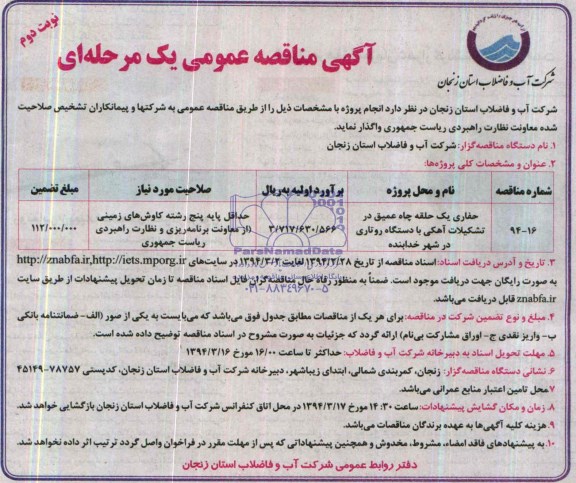 نوبت دوم
شرکت آب و فاضلاب استان زنجان
آگهی مناقصه عمومی یک مرحله‌ای
شرکت آب و فاضلاب استان زنجان در نظر دارد انجام پروژه با مشخصات ذیل را از طریق مناقصه عمومی به شرکتها و پیمانکاران تشخیص صلاحیت
شده معاونت نظارت راهبردی ریاست جمهوری واگذار نماید.
۱. نام دستگاه مناقصه‌گزار: شرکت آب و فاضلاب استان زنجان
۲. عنوان و مشخصات کلی پروژه‌ها:
شماره مناقصه نام و محل پروژه برآورد اولیه به ریال صلاحیت مورد نیاز مبلغ تضمین
حفاری یک حلقه چاه عمیق در حداقل پایه پنج رشته کاوش‌های زمینی
۹۴-۱۶ تشکیلات آهکی با دستگاه روتاری ۳/۷۱۷/۶۳۰/۵۶۶ (از معاونت برنامه‌ریزی و نظارت راهبردی ۱۱۲/۰۰۰/۰۰۰
در شهر خدابنده ریاست جمهوری
ParsNamadData
۰۲۱-۸۸۳۴۹۶۷۰-۵
۳. تاریخ و آدرس دریافت اسناد: اسناد مناقصه از تاریخ ۱۳۹۴/۲/۲۸ لغایت ۱۳۹۴/۳/۲ در سایت‌های http://znabfa.ir,http://iets.mporg.ir
به صورت رایگان جهت دریافت موجود است. ضمناً به منظور رفاه حال مناقصه‌گران فایل اسناد مناقصه تا زمان تحویل پیشنهادات از طریق سایت
znabfa.ir قابل دریافت می‌باشد.
۴. مبلغ و نوع تضمین شرکت در مناقصه: برای هر یک از مناقصات مطابق جدول فوق می‌باشد که می‌بایست به یکی از صور (الف- ضمانتنامه بانکی
ب- واریز نقدی ج- اوراق مشارکت بی‌نام) ارائه گردد که جزئیات به صورت مشروح در اسناد مناقصه توضیح داده شده است.
۵. مهلت تحویل اسناد به دبیرخانه شرکت آب و فاضلاب: حداکثر تا ساعت ۱۶/۰۰ مورخ ۱۳۹۴/۳/۱۶
۶. نشانی دستگاه مناقصه‌گزار: زنجان، کمربندی شمالی، ابتدای زیباشهر، دبیرخانه شرکت آب و فاضلاب استان زنجان، کدپستی ۷۸۷۵۷-۴۵۱۴۹
۷. محل تامین اعتبار منابع عمرانی می‌باشد.
۸. زمان و مکان گشایش پیشنهادات: ساعت ۱۴:۳۰ مورخ ۱۳۹۴/۳/۱۷ در محل اتاق کنفرانس شرکت آب و فاضلاب استان زنجان بازگشایی خواهد شد.
۹. هزینه کلیه آگهی‌ها به عهده برندگان مناقصات می‌باشد.
۱۰. به پیشنهادهای فاقد امضاء، مشروط، مخدوش و همچنین پیشنهاداتی که پس از مهلت مقرر در فراخوان واصل گردد ترتیب اثر داده نخواهد شد.
دفتر روابط عمومی شرکت آب و فاضلاب استان زنجان